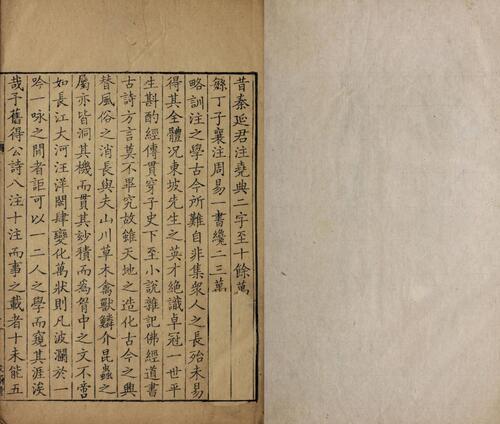 昔秦延君注堯典二字至十餘萬
繇丁子襄注周易一書纔二三萬
略訓注之學古今所難自非集衆人之長殆未易
得其全體况東坡先生之英才絶識卓冠一世平
生斟酌經傳貫穿子史下至小說雜記佛經道書
古詩方言莫不畢究故雖天地之造化古今之興
替風俗之消長與夫山川草木禽獸鱗介昆蟲之
屬亦皆洞其機而貫其妙積而爲胷中之文不啻
如長江大河汪洋閎肆變化萬狀則凡波瀾於一
吟一咏之間者詎可以一二人之學而窺其涯涘
哉予舊得公詩八注十注而事之載者十未能五